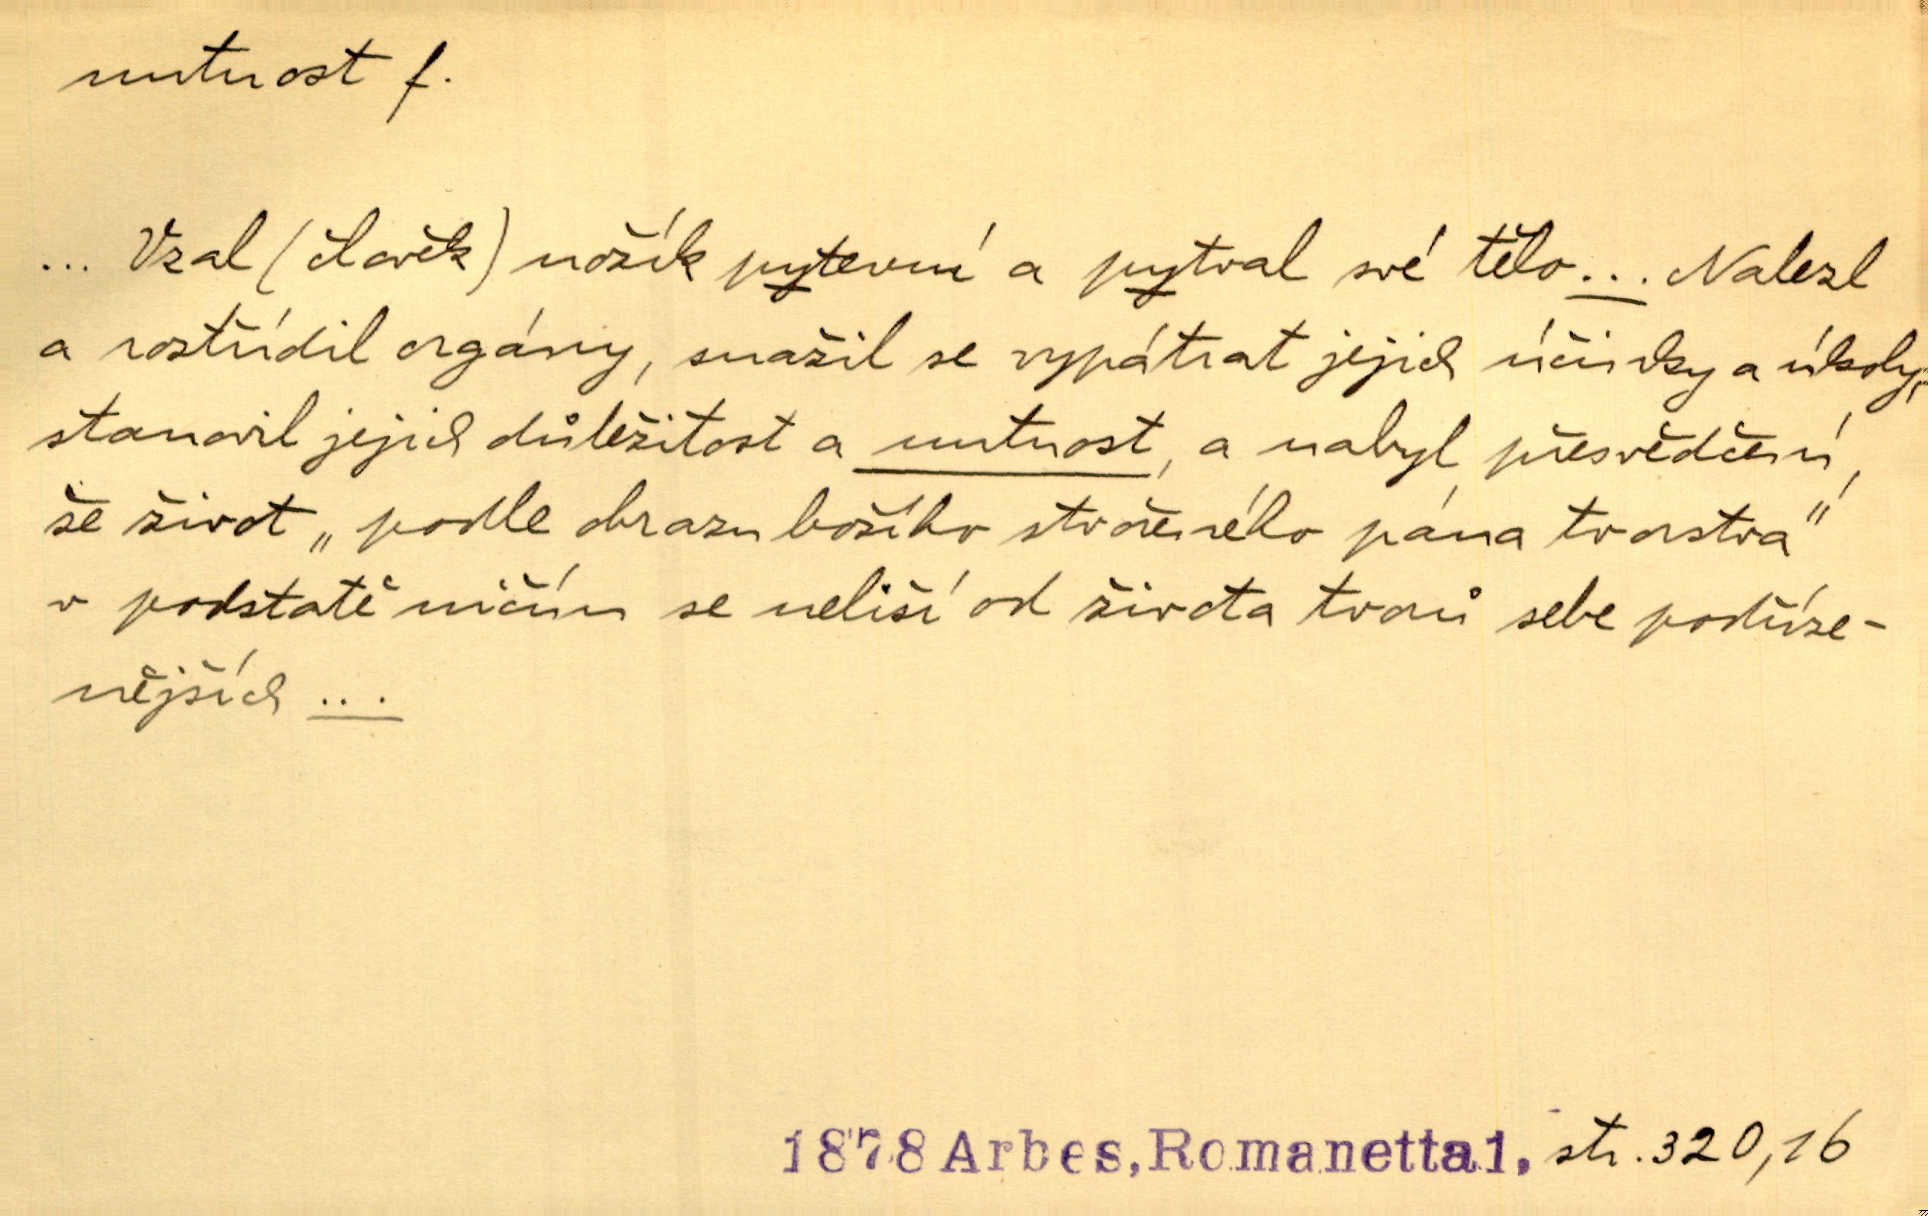 nutnost f.
... Vzal (člověk) nožík pytevní a pytval své tělo... Nalezl
a roztřídil orgány, snažil se vypátrat jejich účinky a úkoly,
stanovil jejich důležitost a nutnost, a nabyl přesvědčení,
že život „podle obrazu božího stvořeného pána tvorstva"
v podstatě ničím se neliší od života tvorů sebe podříze-
nějších ...
1878 Arbes, Romanetta 1, str. 320,16